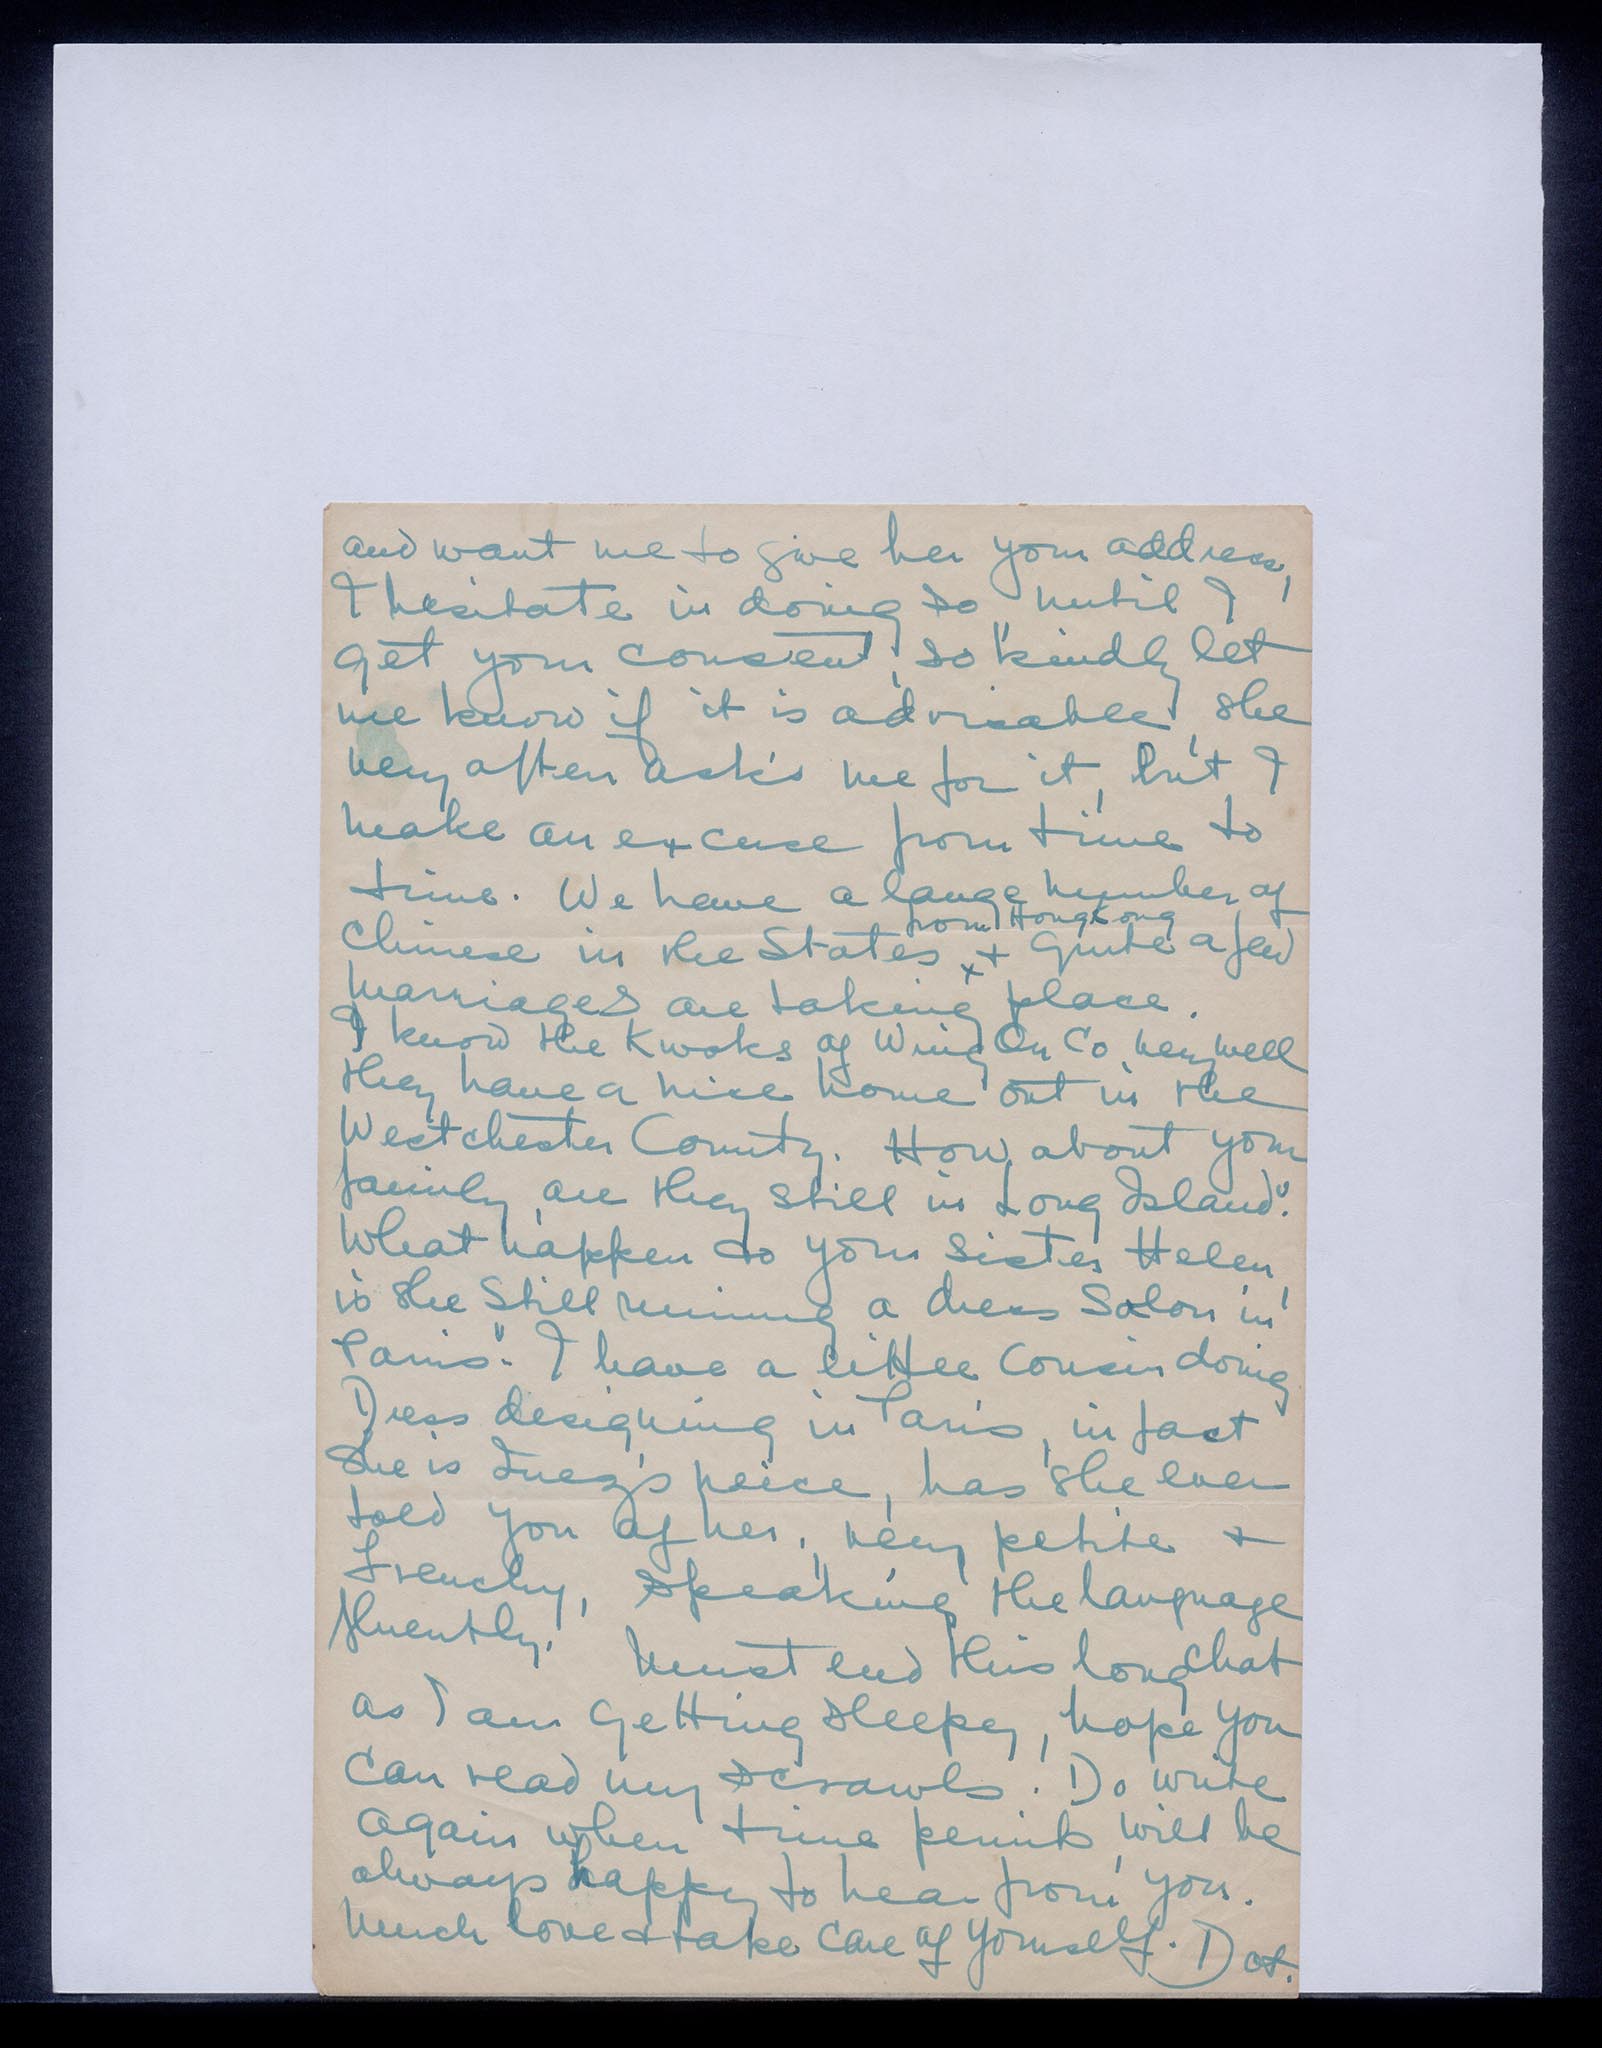 and want me to give her your address,
I hesitate in doing so until I
get your consent, so kindly let
me know if it is advisable, she
very often asks me for it, but I
make an excuse from time to
time. We have a large number of
from Hong Kong
Chinese in the States x + quite a few
marriages are taking place.
I know the Kwoks of Wing On Co, very well
they have a nice home out in the
Westchester County. How about your
family, are they still in Long Island".
What happen to your sister Helen,
is she still running a dress salon in
Paris". I have a little cousin doing
Dress designing in Paris, in fact
she is Inez's neice, has she ever
told you of her, very petite +
Frenchy, speaking the language
fluently. Must end this long chat
as I am getting sleepy, hope you
can read my scrawls! Do write
again when time permits, will be
always happy to hear from you.
Much love + take care of yourself. Dot.